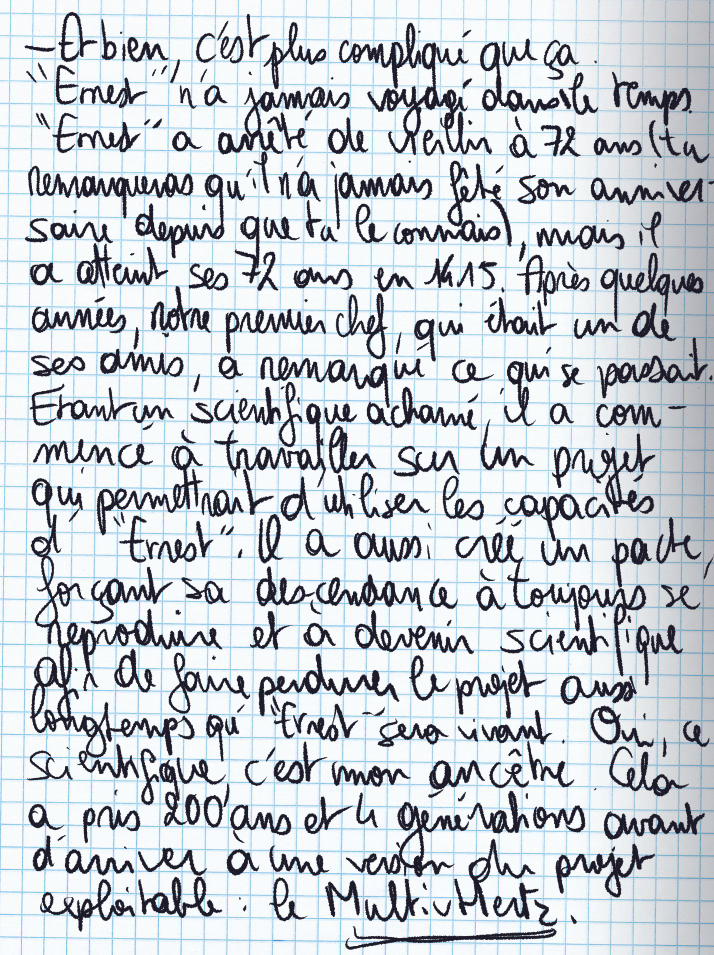 — Et bien, c'est plus compliqué que ça.
"Ernest" n'a jamais voyagé dans le temps.
"Ernest" a arrêté de vieillir à 72 ans (tu
remarqueras qu'il n'a jamais fêté son anniver-
saire depuis que tu le connais), mais il
a atteint ses 72 ans en 1415. Après quelques
années, notre premier chef, qui était un de
ses amis, a remarqué ce qui se passait.
Etant un scientifique acharné, il a com-
mencé à travailler sur un projet
qui permettrait d'utiliser les capacités
d' "Ernest". Il a aussi créé un pacte,
forçant sa descendance à toujours se
reproduire et à devenir scientifique
afin de faire perdurer le projet aussi
longtemps qu' "Ernest" sera vivant. Oui, ce
scientifique, c'est mon ancêtre. Cela
a pris 200 ans et 4 générations avant
d'arriver à une version du projet
exploitable : le MultivHertz.